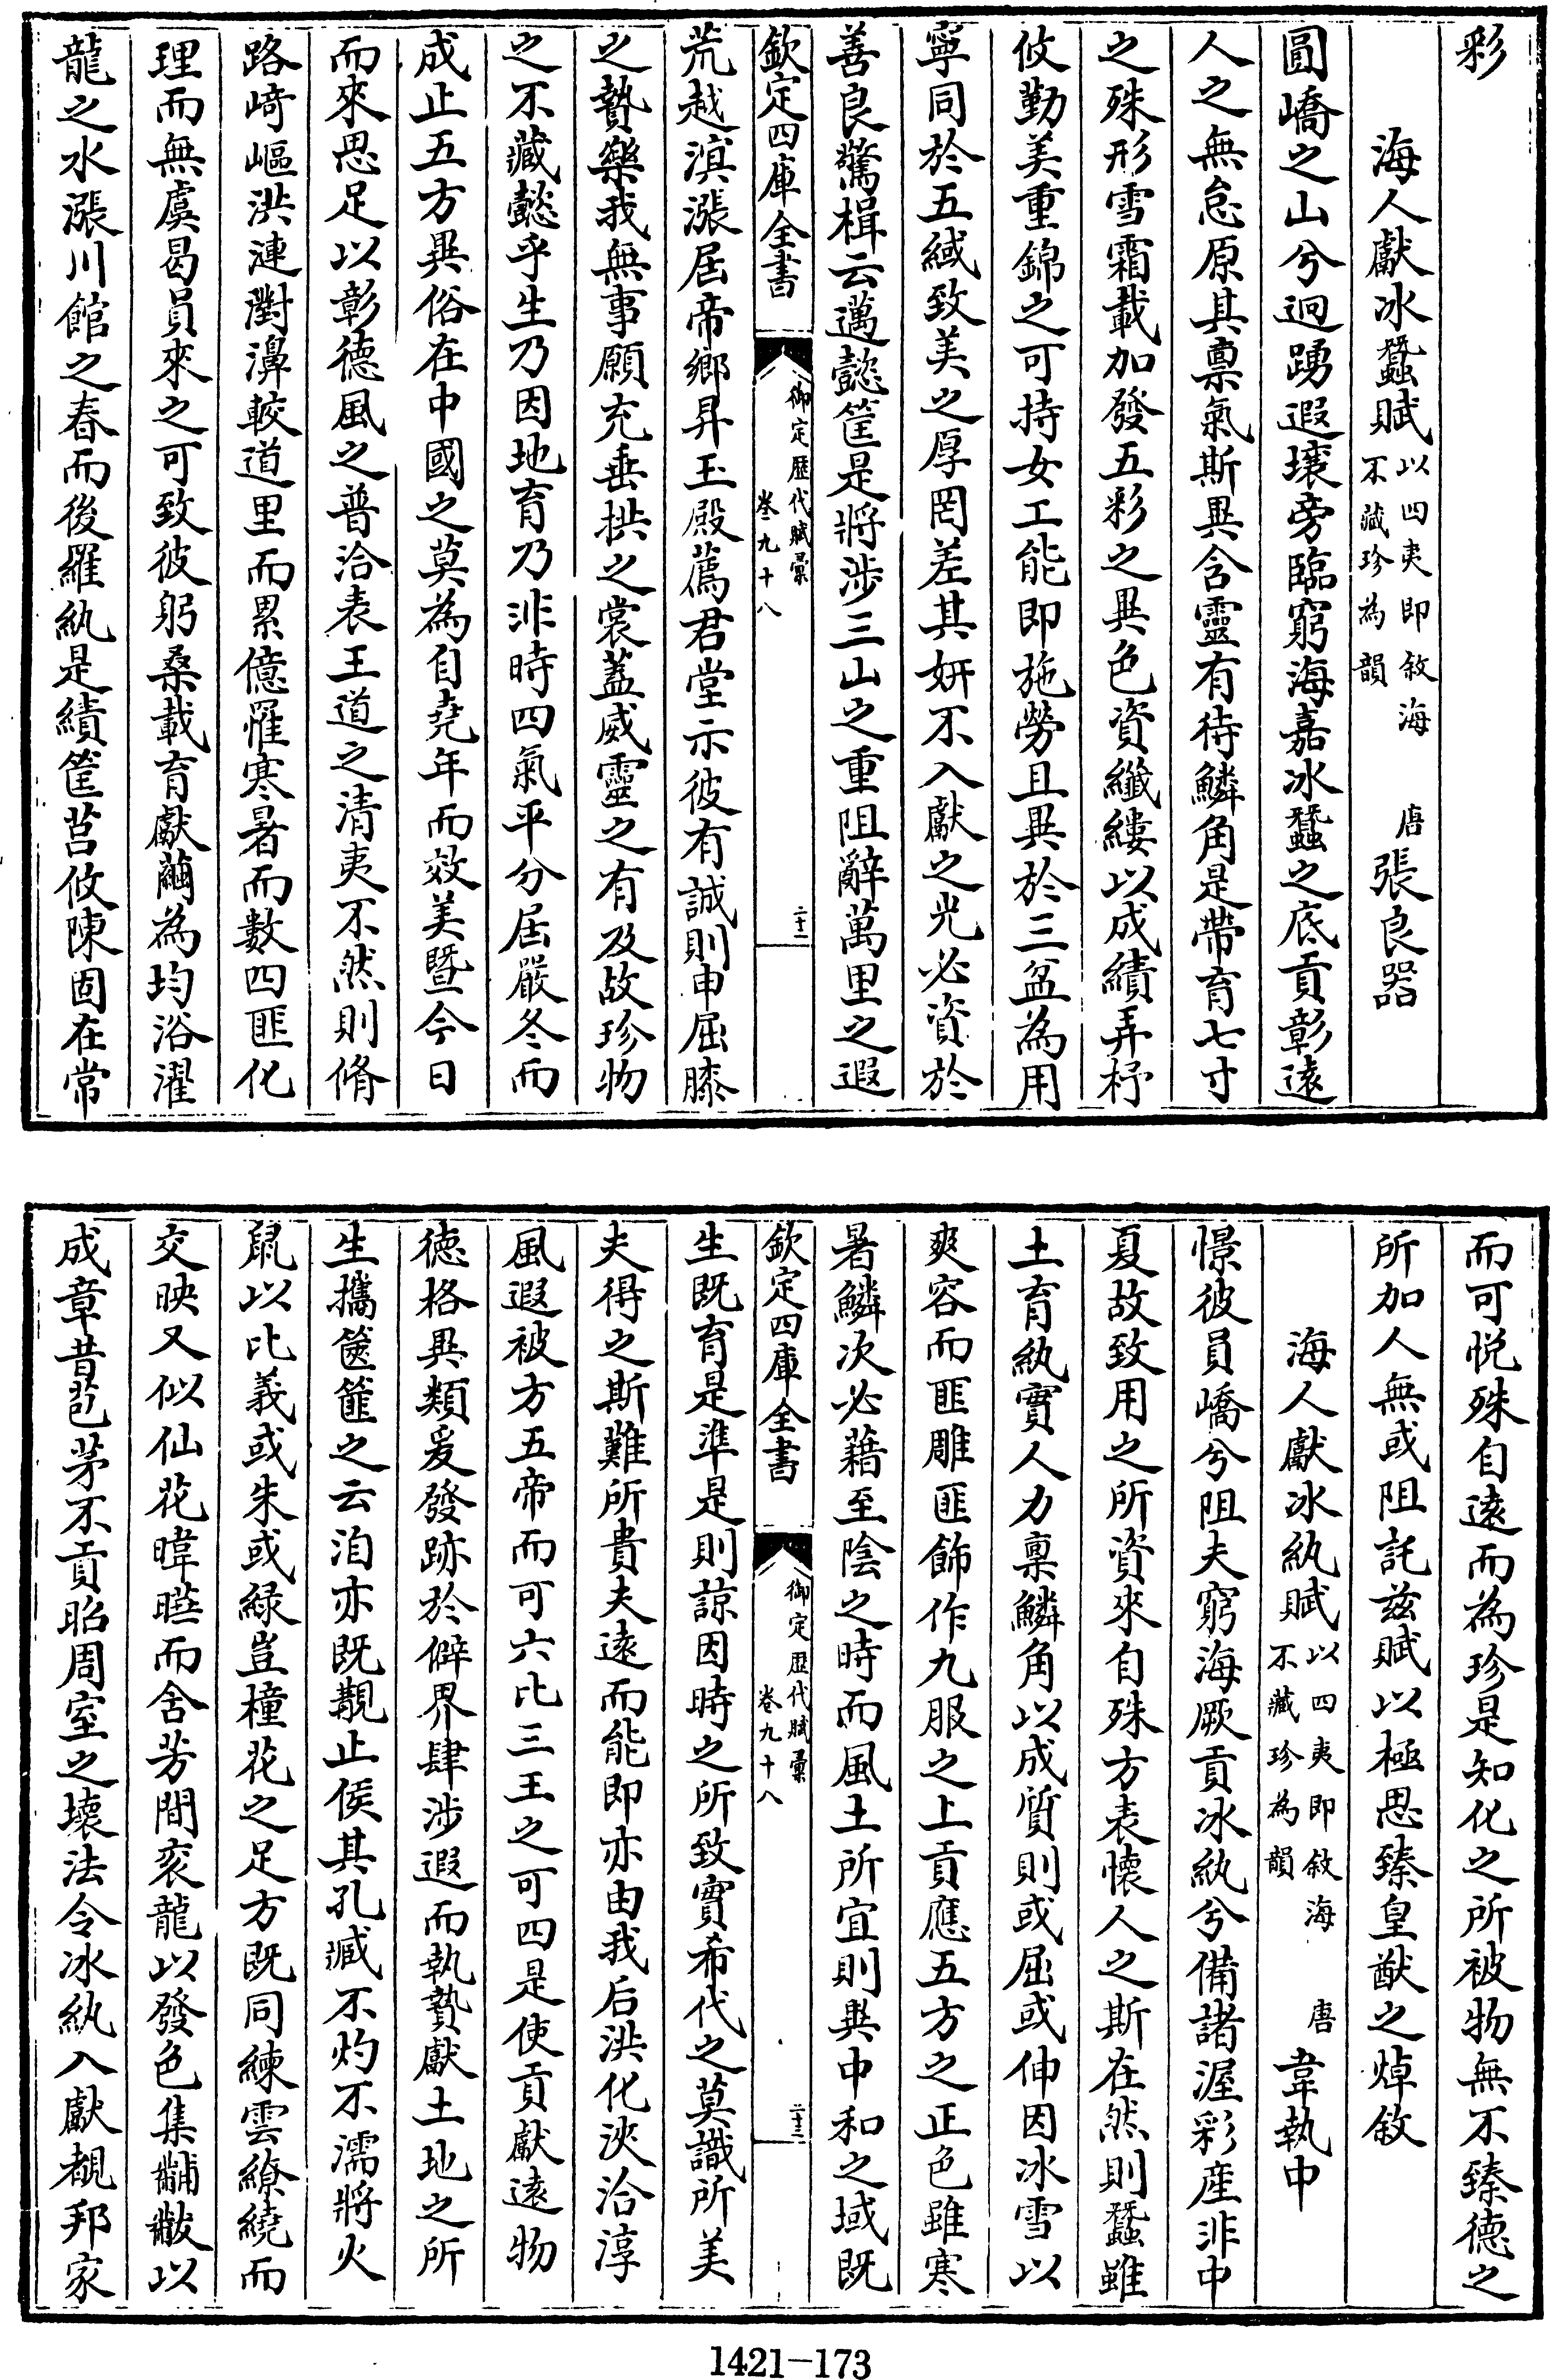 彩
海人獻冰蠶賦以四夷即敘海不藏珍為韻 唐張良器
圓嶠之山兮迥踴遐壤旁臨窮海嘉冰蠶之底貢彰遠
人之無怠原其禀氣斯異含靈有待鱗角是帶育七寸
之殊形雪霜載加發五彩之異色資纖縷以成績弄杼
攸勤美重錦之可持女工能即施勞且異於三盆為用
寧同於五緎致美之厚罔差其妍不入獻之光必資於
善良驚楫云邁懿筐是將涉三山之重阻辭萬里之遐
欽定四庫全書 御定歷代賦彙 卷九十八 二十二
荒越溟漲居帝鄉昇玉殿薦君堂示彼有誠則申屈膝
之贄樂我無事願充垂拱之裳蓋威靈之有及故珍物
之不藏懿乎生乃因地育乃非時四氣平分居嚴冬而
成止五方異俗在中國之莫為自堯年而效美暨今日
而來思足以彰德風之普洽表王道之清夷不然則脩
路崎嶇洪漣澍濞較道里而累億罹寒暑而數四匪化
理而無虞曷員來之可致彼躬桑載育獻繭為均浴濯
龍之水漲川館之春而後羅紈是績筐筥攸陳固在常
而可悦殊自遠而為珍是知化之所被物無不臻德之
所加人無或阻託茲賦以極思臻皇猷之焯敘
海人獻冰紈賦以四夷即敘海不藏珍為韻 唐韋執中
憬彼員嶠兮阻夫窮海厥貢冰紈兮備諸渥彩産非中
夏故致用之所資來自殊方表懷人之斯在然則蠶雖
土育紈實人力禀鱗角以成質則或屈或伸因冰雪以
爽容而匪雕匪飾作九服之上貢應五方之正色雖寒
暑鱗次必藉至陰之時而風土所宜則異中和之域既
欽定四庫全書 御定歷代賦彙 卷九十八 二十三
生既育是準是則諒因時之所致實希代之莫識所美
夫得之斯難所貴夫遠而能即亦由我后洪化浹洽淳
風遐被方五帝而可六比三王之可四是使貢獻遠物
德格異類爰發跡於僻界肆涉遐而執贄獻土地之所
生攜篋篚之云洎亦既覯止俟其孔臧不灼不濡將火
鼠以比義或朱或綠豈橦花之足方既同練雲繚繞而
交映又似仙花暐曄而含芳間衮龍以發色集黼黻以
成章昔苞茅不貢昭周室之壞法今冰紈入獻覩邦家
1421-173